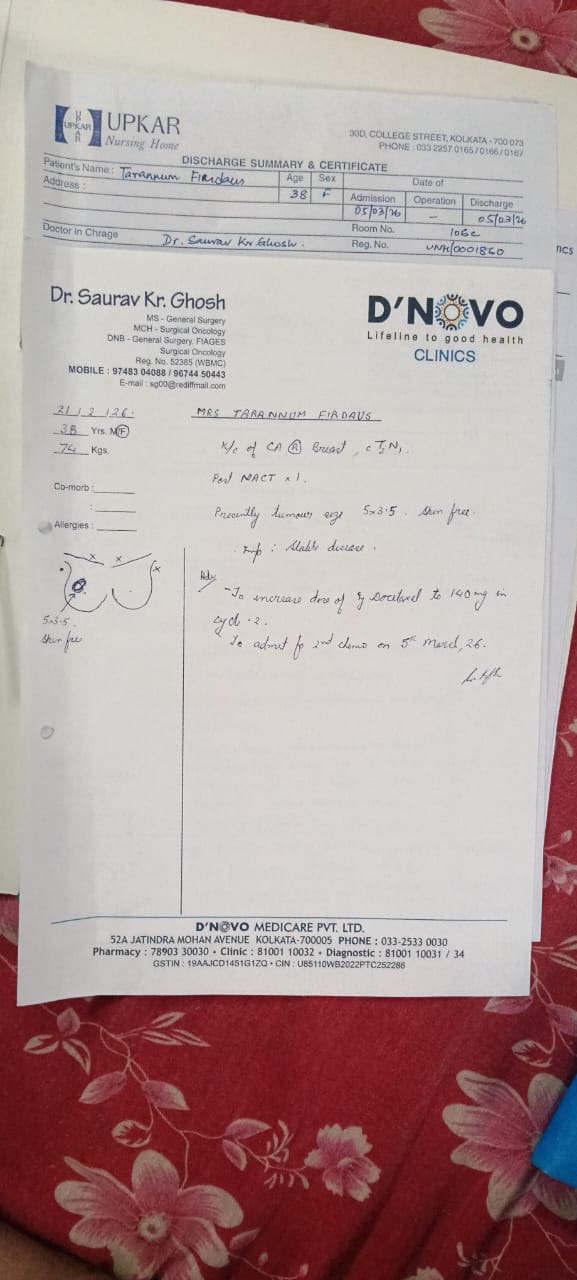 UPKAR
UPKAR
Nursing Home
30D, COLLEGE STREET, KOLKATA - 700 073
PHONE : 033 2257 0165 / 0166 / 0167
DISCHARGE SUMMARY & CERTIFICATE
Patient's Name : Tarannum Firdaus
Age Sex
38 F
Date of
Admission Operation Discharge
05/03/26 – 05/03/26
Address :
Room No. 106c
Doctor in Chrage Dr. Saurav Kr. Ghosh.
Reg. No. UNH/0001860
Dr. Saurav Kr. Ghosh
MS - General Surgery
MCH - Surgical Oncology
DNB - General Surgery. FIAGES
Surgical Oncology
Reg. No. 52385 (WBMC)
MOBILE : 97483 04088 / 96744 50443
E-mail : sg00@rediffmail.com
D'NOVO
Lifeline to good health
CLINICS
21/2/26.
38 Yrs. M/F
74 Kgs.
Co-morb :
:
Allergies :
MRS TARANNUM FIRDAUS
K/c of CA (R) Breast, cT3N1.
Post NACT x 1.
Presently tumour size 5x3.5. Skin free.
Imp : Stable disease.
Adv
- To increase dose of Inj Docetaxel to 140 mg in
cycle - 2.
To admit for 2nd chemo on 5th March, 26.
x x x
5x3.5.
Skin free
D'NOVO MEDICARE PVT. LTD.
52A JATINDRA MOHAN AVENUE KOLKATA-700005 PHONE : 033-2533 0030
Pharmacy : 78903 30030 • Clinic : 81001 10032 • Diagnostic : 81001 10031 / 34
GSTIN : 19AAJCD1451G1ZQ • CIN : U85110WB2022PTC252286